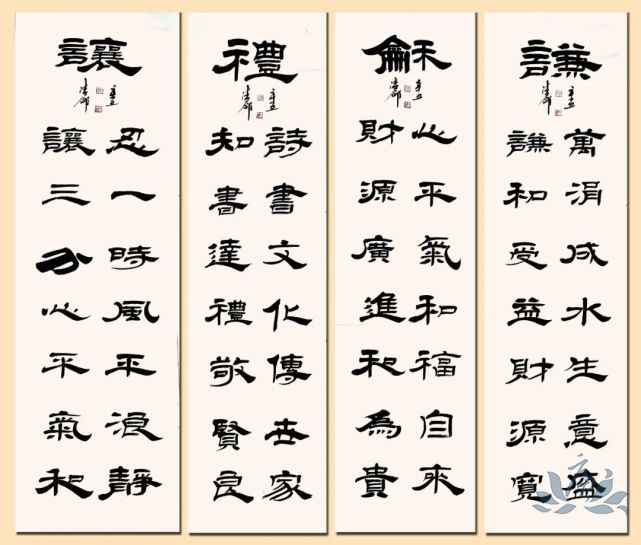 謙
辛丑
萬涓成水生意盛
謙和受益財源寬
龢
辛丑
心平氣和福自來
財源廣進和為貴
禮
辛丑
詩書文化傳世家
知書達禮敬賢良
讓
辛丑
忍一時風平浪靜
讓三分心平氣和